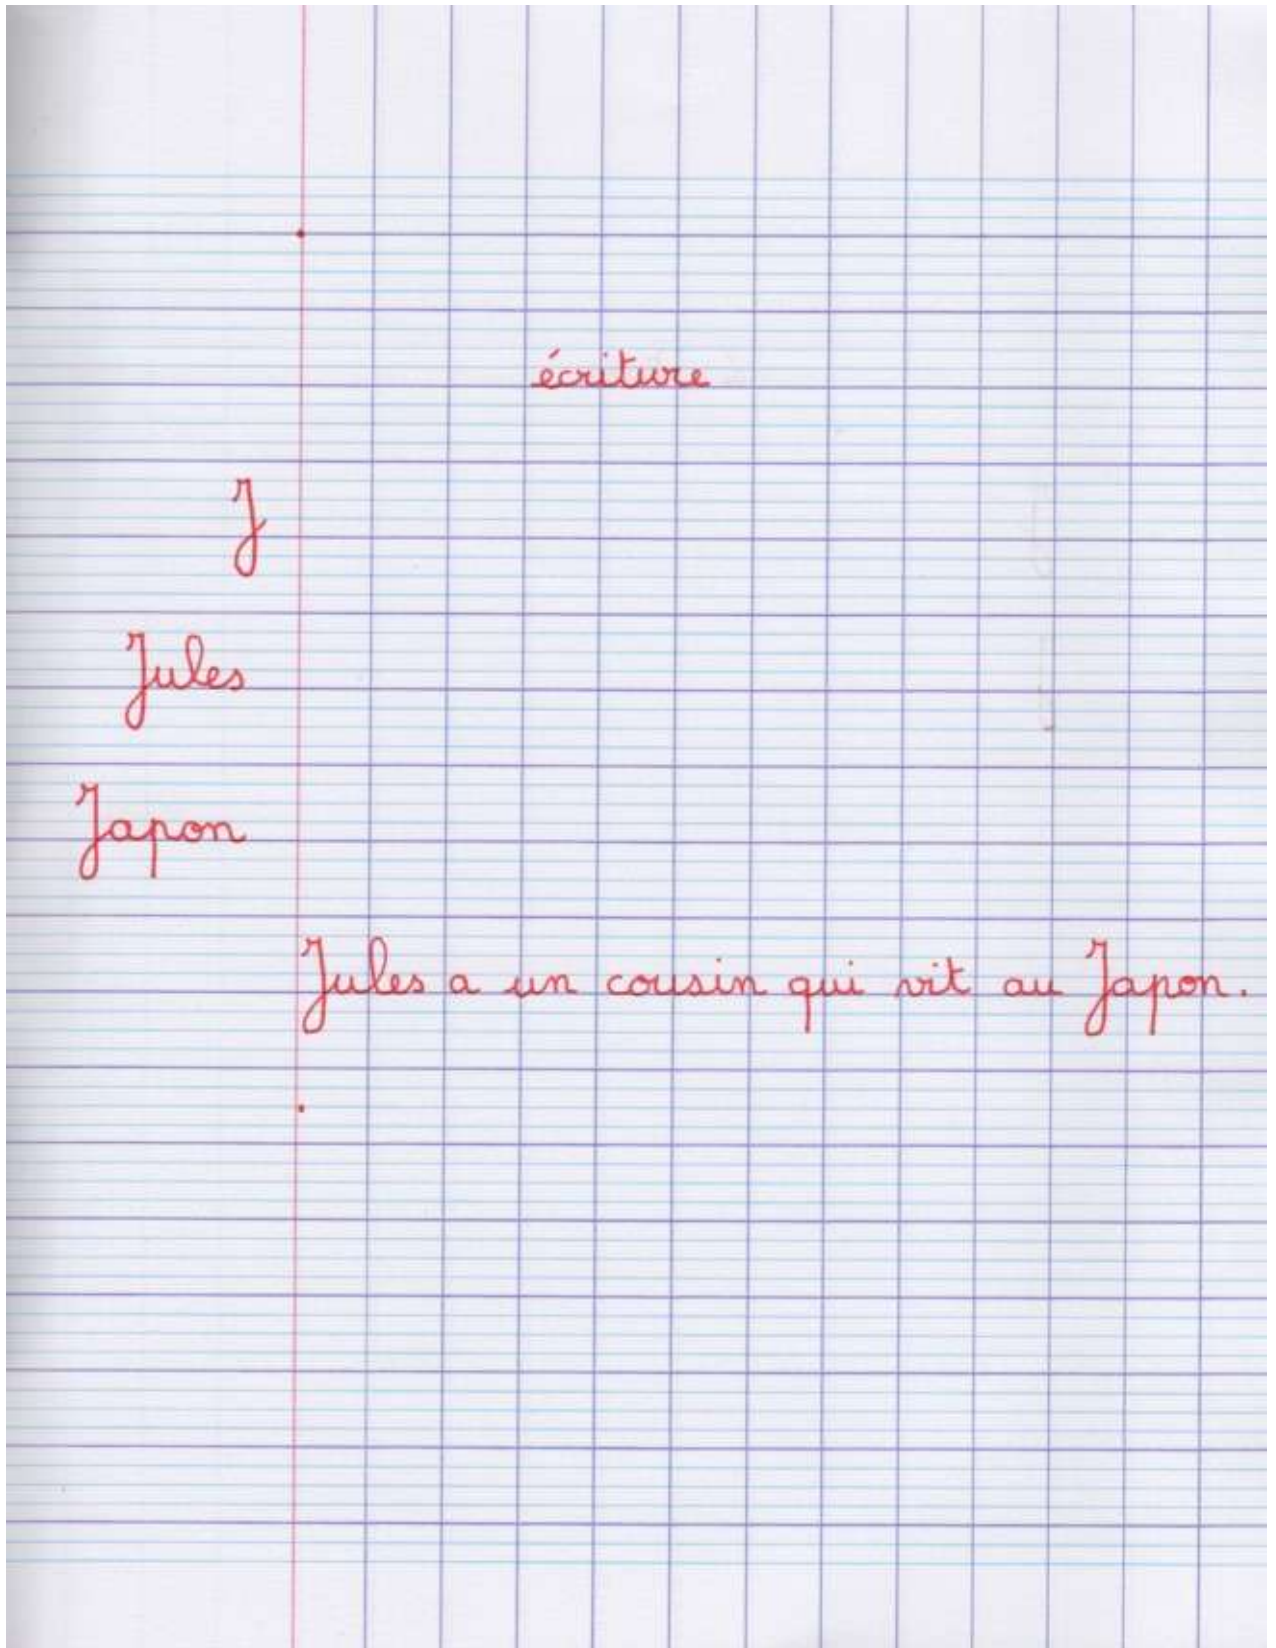 écriture
J
Jules
Japon
Jules a un cousin qui vit au Japon.